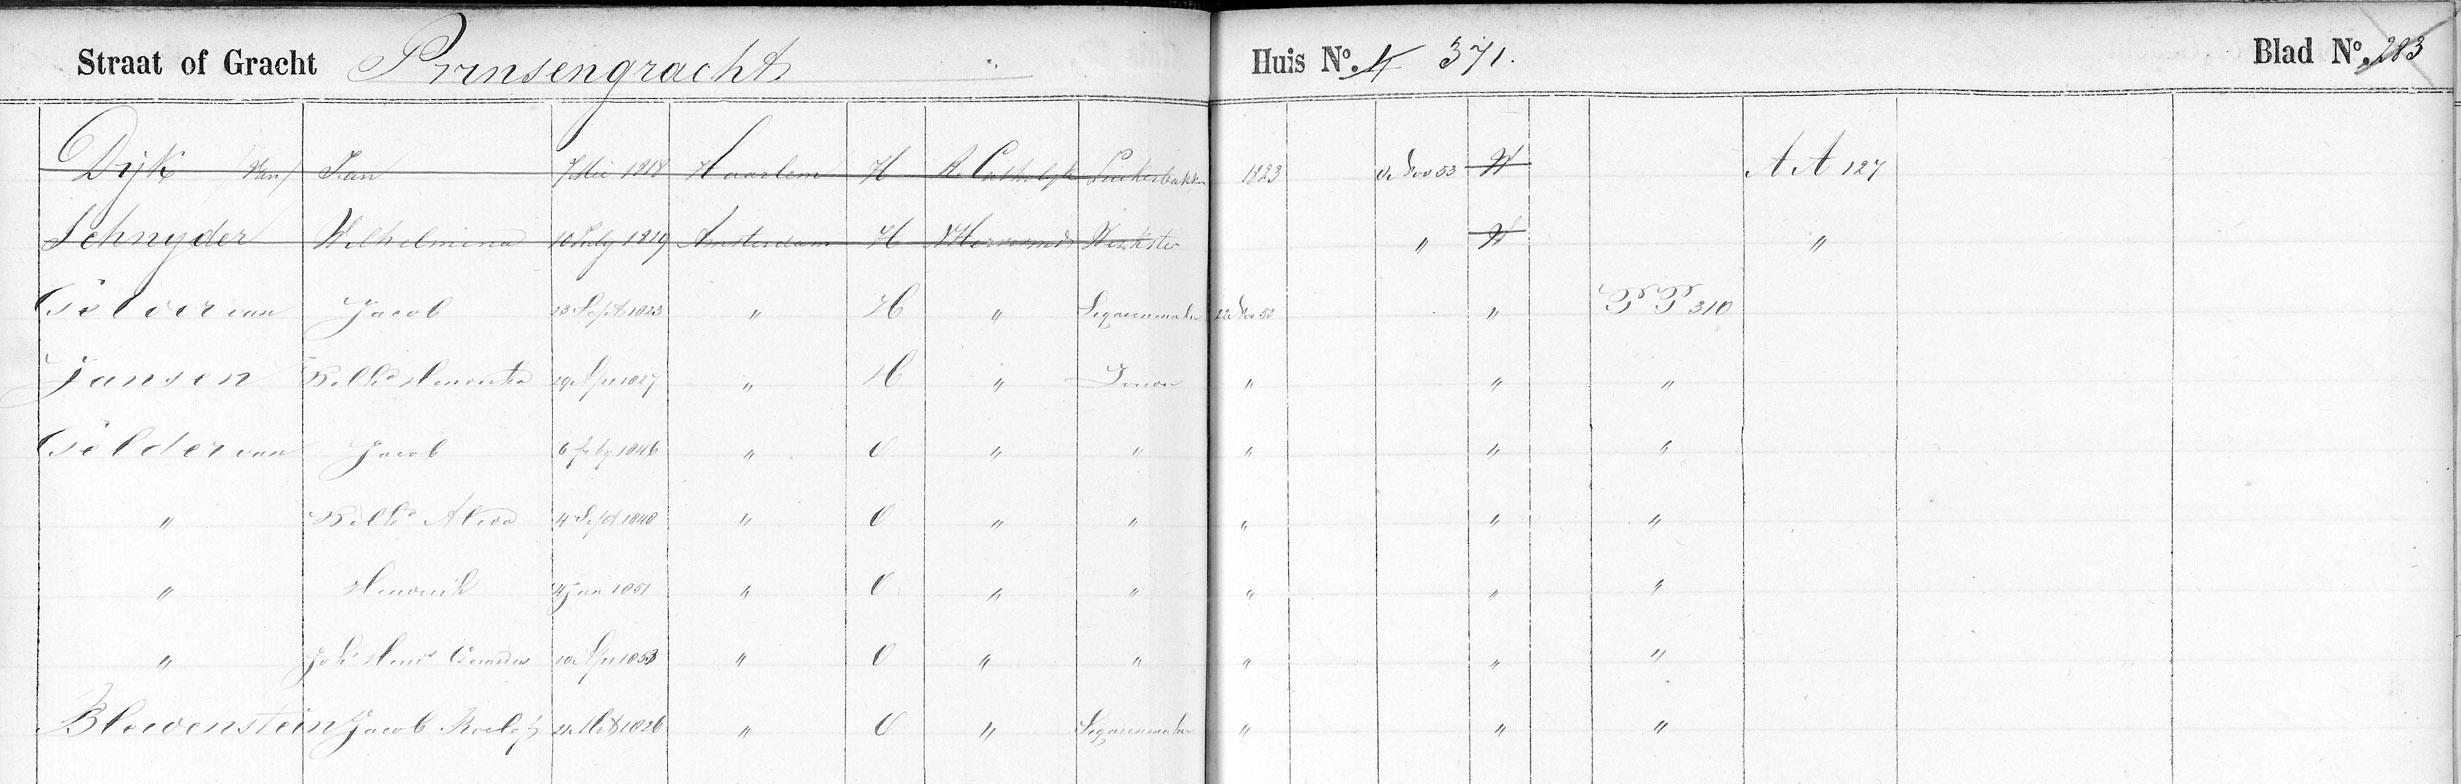 Straat of Gracht Prinsengracht Huis No. 4 371. Blad No. 283
Dijk (van) Jan 7 Mei 1818 Haarlem H R. Catholijk Suikerbakker 1823 Nov 53 W AA 127
Schnyder Wilhelmina 10 July 1819 Amsterdam H N Hervormd Werkster " W "
Gelder van Jacob 23 Sept 1823 " H " Segarenmaker 22 Nov 53 " PP 310
Jansen 29 Apr 1827 " H " " " "
Gelder van Jacob 6 feby 1846 " O " " " " "
" Alida 4 Sept 1848 " O " " " " "
" Hendrik Jan 1851 " O " " " " "
" Joh's Hend's 10 Apr 1853 " O " " " " "
Bloevenstein Jacob Roelof 1826 " O " Segarenmaker " " "